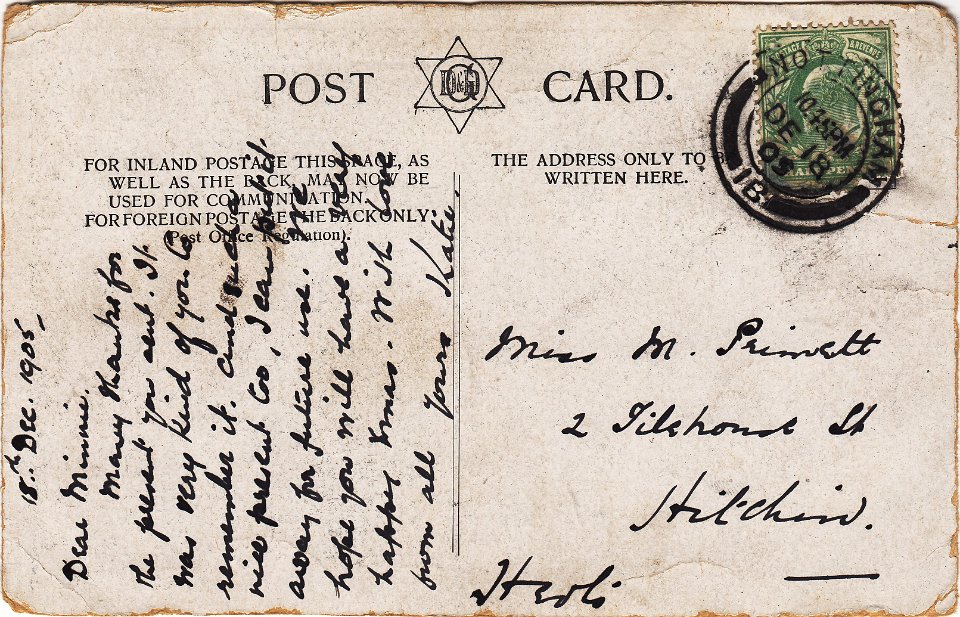 POST CARD.
FOR INLAND POSTAGE THIS SPACE, AS
WELL AS THE BACK, MAY NOW BE
USED FOR COMMUNICATION.
FOR FOREIGN POSTAGE THE BACK ONLY.
(Post Office Regulation).
THE ADDRESS ONLY TO BE
WRITTEN HERE.
POSTAGE & REVENUE
NOTTINGHAM
10.45PM
DE 18
05
18th Dec. 1905
Dear Minnie.
Many thanks for
the present you sent. It
was very kind of you to
remember it. and such a
nice present too, I can put it
away for future use. We
hope you will have a very
happy Xmas. With love
from all yours Kate.
Miss M. Primett
2 Tilehouse St
Hitchin.
Herts